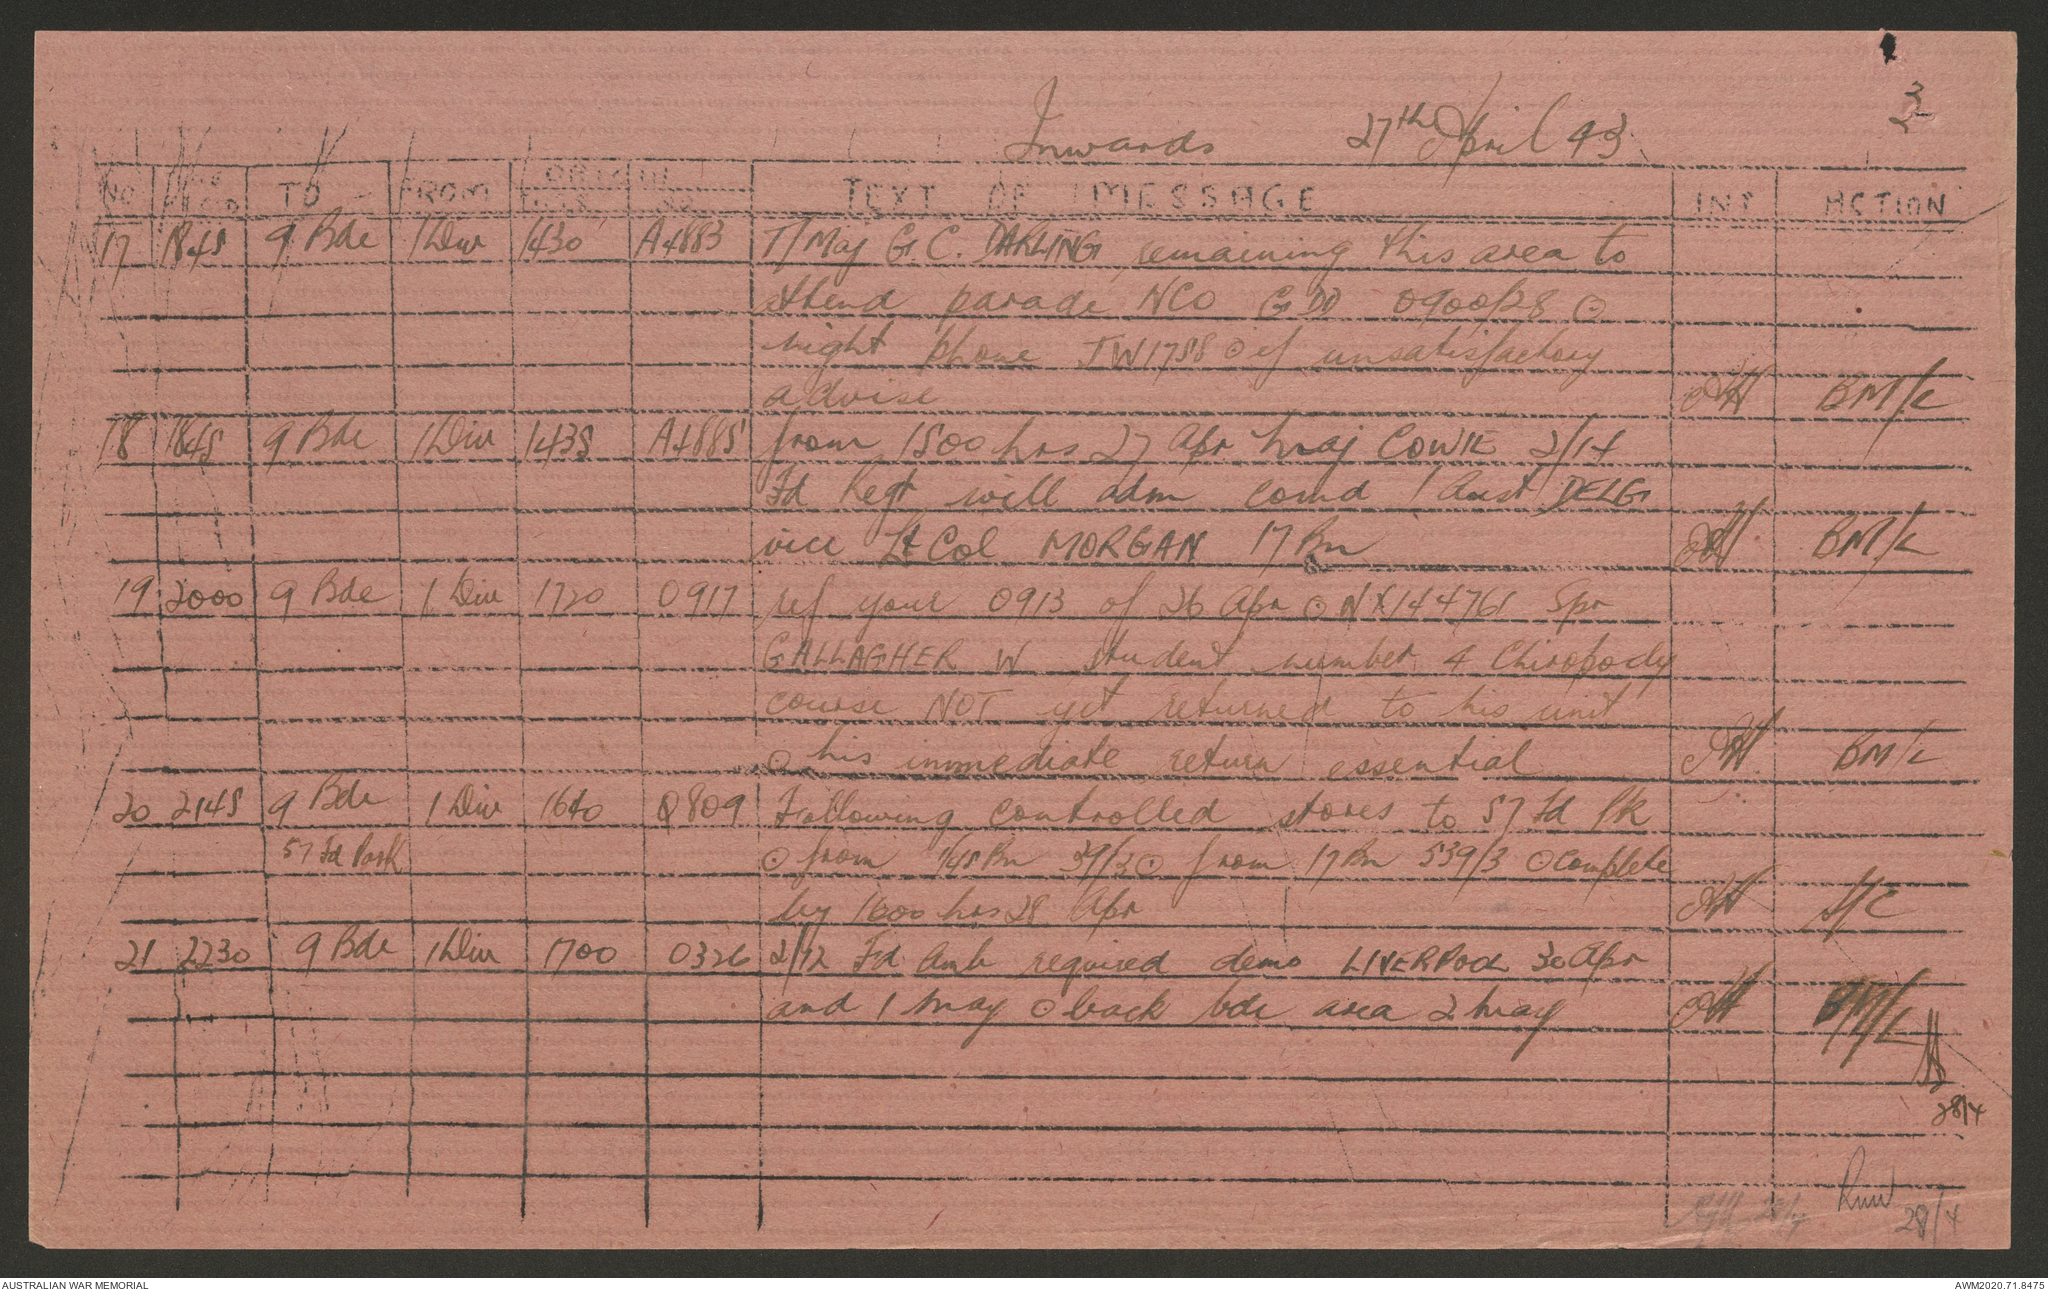 3
2
Inwards 27th April 43
NO TO FROM ORIGIN TEXT OF MESSAGE INT ACTION
17 1845 9 Bde 1 Div 1430 A4883 T/Maj G.C. DARLING remaining this area to
attend parade NCO GDD 0900/28 ⊙
night phone JW1788 ⊙ if unsatisfactory
advise BM/L
18 1845 9 Bde 1 Div 1435 A4885 from 1500 hrs 27 Apr Maj COWIE 2/14
Fd Regt will adm comd 1 Aust DELG
vice Lt Col MORGAN 17 Bn BM/L
19 2000 9 Bde 1 Div 1720 0917 ref your 0913 of 26 Apr ⊙ NX144761 Spr
GALLAGHER W student number 4 Chiropody
course NOT yet returned to his unit
⊙ his immediate return essential BM/L
20 2145 9 Bde 1 Div 1640 Q809 Following controlled stores to 57 Fd Pk
57 Fd Park ⊙ from 1/45 Bn 39/2 ⊙ from 17 Bn 539/3 ⊙ complete
by 1600 hrs 28 Apr S/C
21 2230 9 Bde 1 Div 1700 0326 2/12 Fd Amb required demo LIVERPOOL 30 Apr
and 1 May ⊙ back bde area 2 May BM/L
28/4
28/4
AUSTRALIAN WAR MEMORIAL AWM2020.71.8475